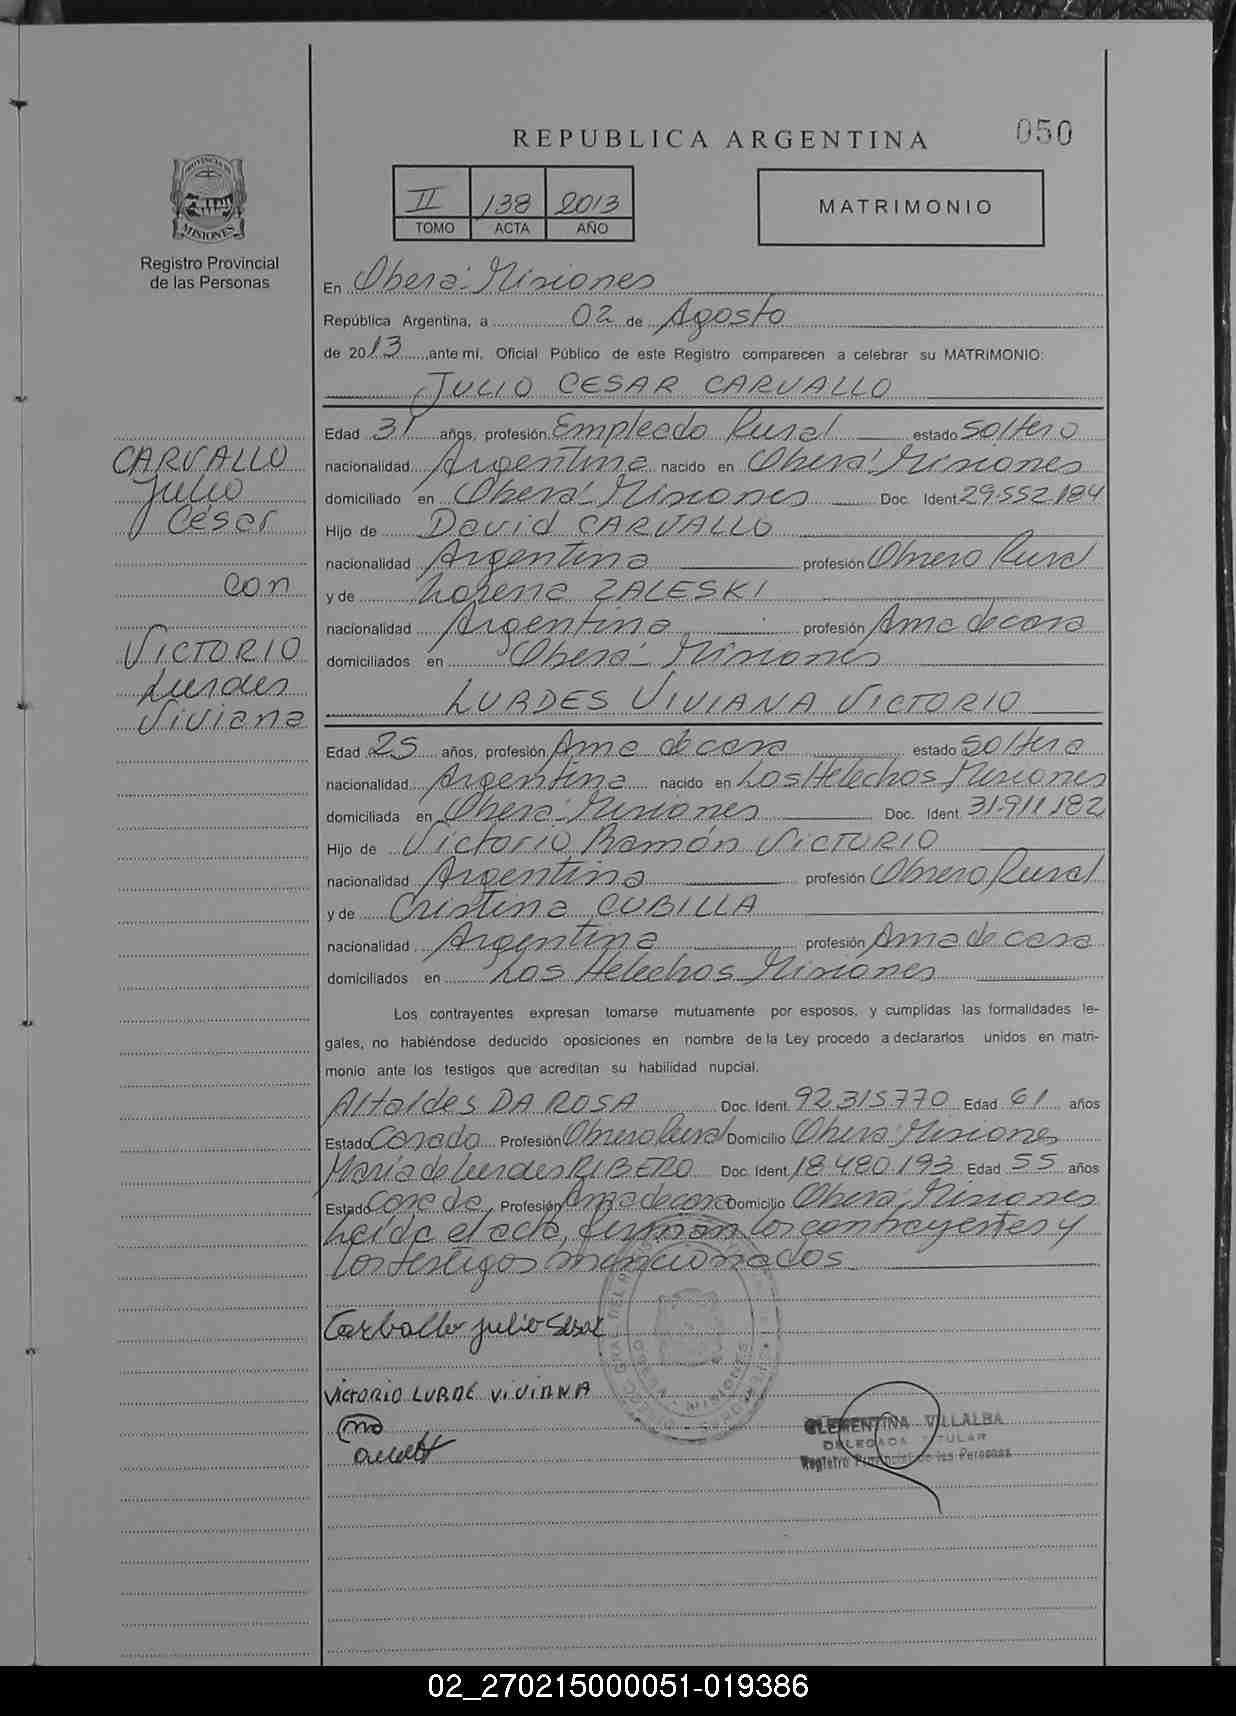 REPUBLICA ARGENTINA
050
PROVINCIA DE
MISIONES
Registro Provincial
de las Personas
II 138 2013
TOMO ACTA AÑO
MATRIMONIO
En Oberá - Misiones
República Argentina, a 02 de Agosto
de 2013 ante mí, Oficial Público de este Registro comparecen a celebrar su MATRIMONIO:
JULIO CESAR CARVALLO
CARVALLO
Julio
César
con
VICTORIO
Lurdes
Viviana
Edad 31 años, profesión Empleado Rural estado soltero
nacionalidad Argentina nacido en Oberá - Misiones
domiciliado en Oberá - Misiones Doc. Ident. 29.552.184
Hijo de David CARVALLO
nacionalidad Argentina profesión Obrero Rural
y de Lorena ZALESKI
nacionalidad Argentina profesión Ama de casa
domiciliados en Oberá - Misiones
LURDES VIVIANA VICTORIO
Edad 25 años, profesión Ama de casa estado soltera
nacionalidad Argentina nacido en Los Helechos Misiones
domiciliada en Oberá - Misiones Doc. Ident. 31.911.182
Hijo de Victorio Ramón VICTORIO
nacionalidad Argentina profesión Obrero Rural
y de Cristina CUBILLA
nacionalidad Argentina profesión Ama de casa
domiciliados en Los Helechos Misiones
Los contrayentes expresan tomarse mutuamente por esposos, y cumplidas las formalidades le-
gales, no habiéndose deducido oposiciones en nombre de la Ley procedo a declararlos unidos en matri-
monio ante los testigos que acreditan su habilidad nupcial.
Altaides DA ROSA Doc. Ident. 92.315.770 Edad 61 años
Estado Casado Profesión Obrero Rural Domicilio Oberá Misiones
María de Lurdes RIBERO Doc. Ident. 18.480.193 Edad 55 años
Estado Casada Profesión Ama de casa Domicilio Oberá, Misiones
Leída el acta, firman los contrayentes y
los testigos mencionados
Carballo julio Sesar
VICTORIO LURDE VIVIANA
CLEMENTINA VILLALBA
DELEGADA TITULAR
Registro Provincial de las Personas
02_270215000051-019386